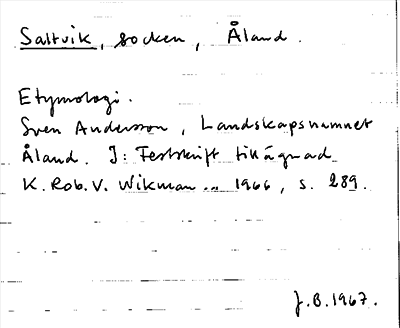 Saltvik, socken, Åland.
Etymologi.
Sven Andersson, Landskapsnamnet
Åland. I: Festskrift tillägnad
K. Rob. V. Wikman... 1966, s. 289.
J.B. 1967.